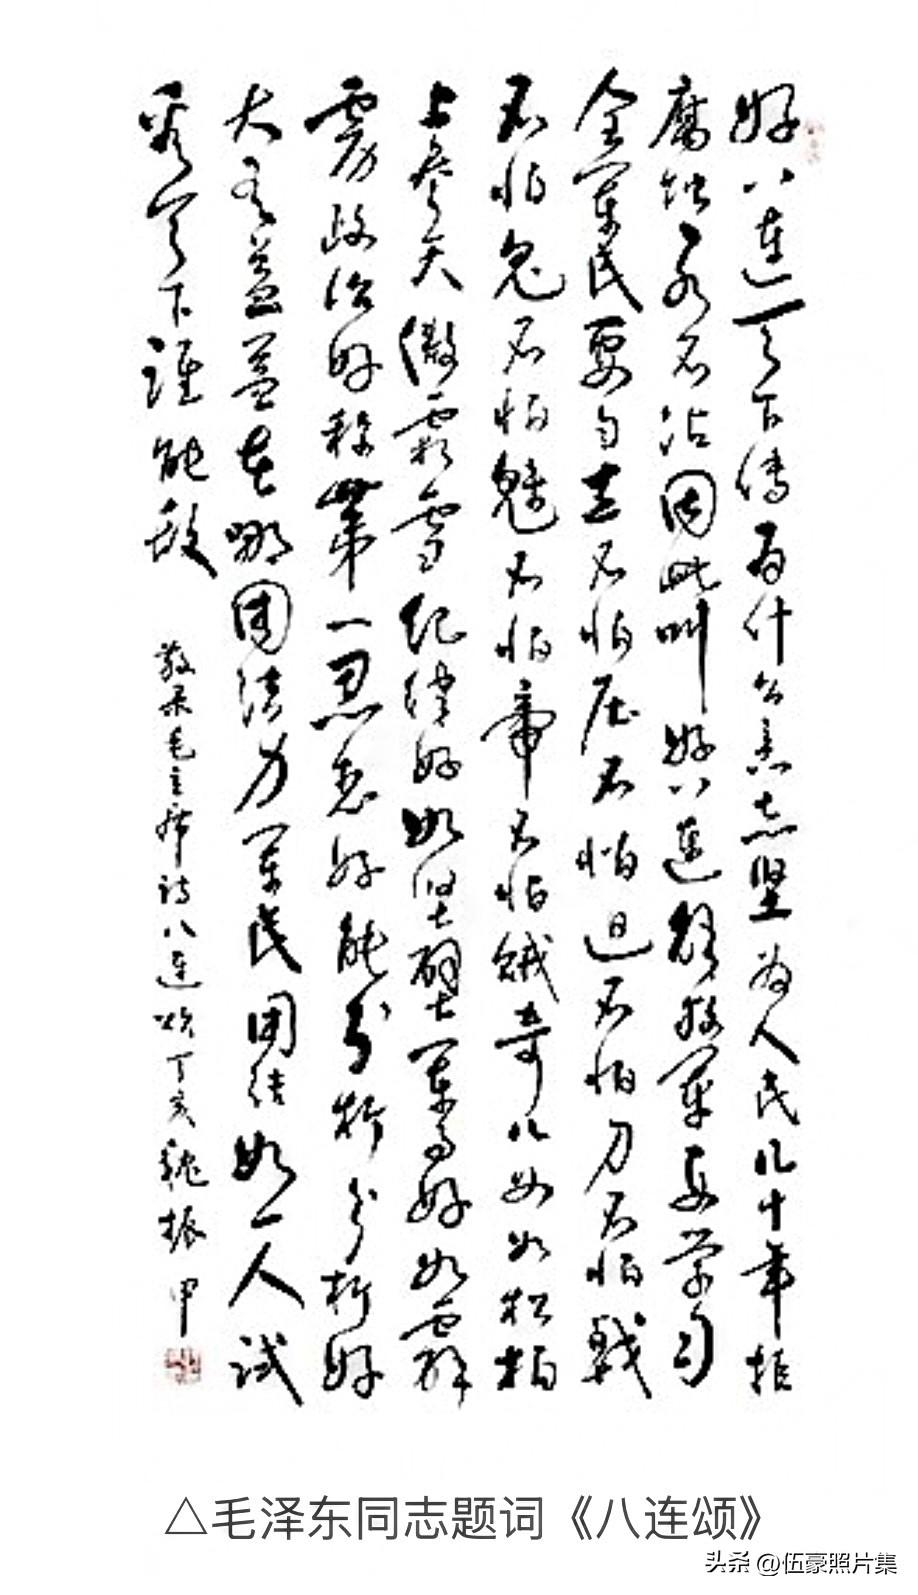 好八连天下传为什么意志坚为人民几十年拒
腐蚀永不沾因此叫好八连解放军要学习
全军民要自立不怕压不怕迫不怕刀不怕戟
不怕鬼不怕魅不怕帝不怕贼奇儿女如松柏
上参天傲霜雪纪律好如坚壁军事好如霹
雳政治好称第一思想好能分析分析好
大有益益在哪团结力军民团结如一人试
看天下谁能敌
敬录毛主席诗八连颂丁亥魏振甲
△毛泽东同志题词《八连颂》
头条 @伍豪照片集